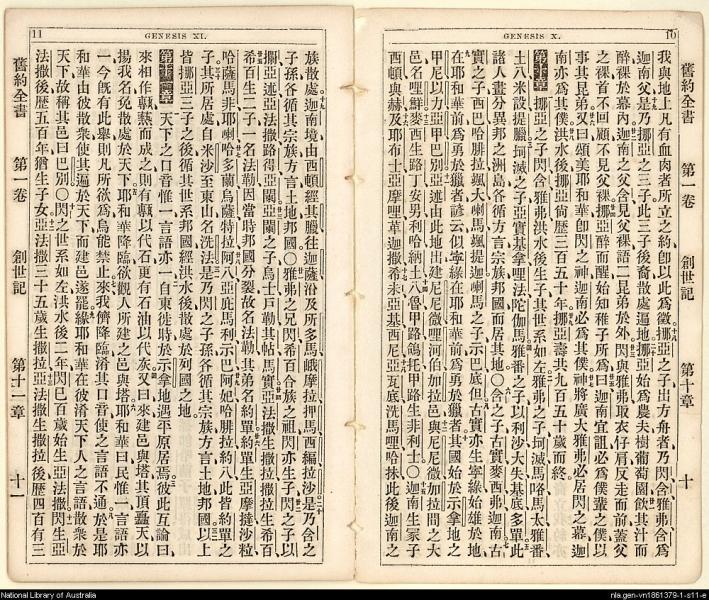 10
GENESIS X.
舊約全書 第一卷 創世記 第十章 十
我與地上凡有血肉者所立之約卽以此為徵挪亞之子出方舟者乃閃含雅弗含為
迦南父是乃挪亞之三子此三子後裔散處遍地挪亞始為農夫樹葡萄園飲其汁而
醉裸於幕內迦南之父含見父裸語二昆弟於外閃與雅弗取衣仔肩反走而前蓋父
之裸首不回顧不見父裸挪亞醉而醒始知稚子所為曰迦南宜詛必為僕輩之僕以
事其昆弟又曰頌美耶和華卽閃之神迦南必為其僕神將廣大雅弗必居閃之幕迦
南亦為其僕洪水後挪亞尙歷三百五十年挪亞壽共九百五十歲而終
第十章 挪亞之子閃含雅弗洪水後生子其世系如左雅弗之子坷滅馬咯馬太雅番
土八米設提臘坷滅之子亞實基拿哩法陀伽馬雅番之子以利沙大失基底多單此
諸人畫分異邦之洲島各循方言宗族邦國而居其地○含之子古實麥西弗迦南古
實之子西巴哈腓拉颯大喇馬颯提迦喇馬之子示巴底但古實亦生寧綠始雄於地
在耶和華前為勇於獵者諺云似寧綠在耶和華前為勇於獵者其國始於示拿地之
甲尼以力亞甲巴別亞述由此地出建尼尼微哩河伯加拉邑與尼尼微加拉間之大
邑名哩鮮麥西生路丁安男利哈納土八魯甲路鴿托甲路生非利士○迦南生冢子
西頓與赫及耶布士亞摩哩革迦撒希未亞基西尼亞瓦底洗馬哩哈抹此後迦南之
11
GENESIS XI.
族散處迦南境由西頓經其臘往迦薩沿及所多馬峨摩拉押馬西編拉沙是乃含之
子孫各循其宗族方言土地邦國○雅弗之兄閃希百合族之祖閃亦生子閃之子以
攔亞述亞法撒路得亞蘭亞蘭之子烏士戶勒其帖馬實亞法撒生撒拉撒拉生希百
希百生二子一名法勒因當時邦國分裂故名法勒其弟名約單約單生亞摩撻沙粒
哈薩馬非耶喇哈多蘭烏薩特拉阿八亞庇馬利示巴阿妃哈腓拉約八此皆約單之
子其所居處自米沙至東山名洗法是乃閃之子孫各循其宗族方言土地邦國以上
皆挪亞三子之後循其世系邦國經洪水後散處於列國之地
第十一章 天下之口音惟一言語亦一自東徙時於示拿地遇平原居焉彼此互論曰
來相作甎爇而成之則有甎以代石更有石油以代灰又曰來建邑與塔其頂矗天以
揚我名免散處於天下耶和華降臨欲觀人所建之邑與塔耶和華曰民惟一言語亦
一今旣有此舉則凡所欲為烏能禁止來我儕降臨淆其口音使之言語不通於是耶
和華由彼散眾使其遍於天下而建邑遂罷緣耶和華在彼淆天下人之言語散眾於
天下故稱其邑曰巴別○閃之世系如左洪水後二年閃已百歲始生亞法撒閃生亞
法撒後歷五百年猶生子女亞法撒三十五歲生撒拉亞法撒生撒拉後歷四百有三
舊約全書 第一卷 創世記 第十一章 十一
National Library of Australia
nla.gen-vn1861379-1-s11-e